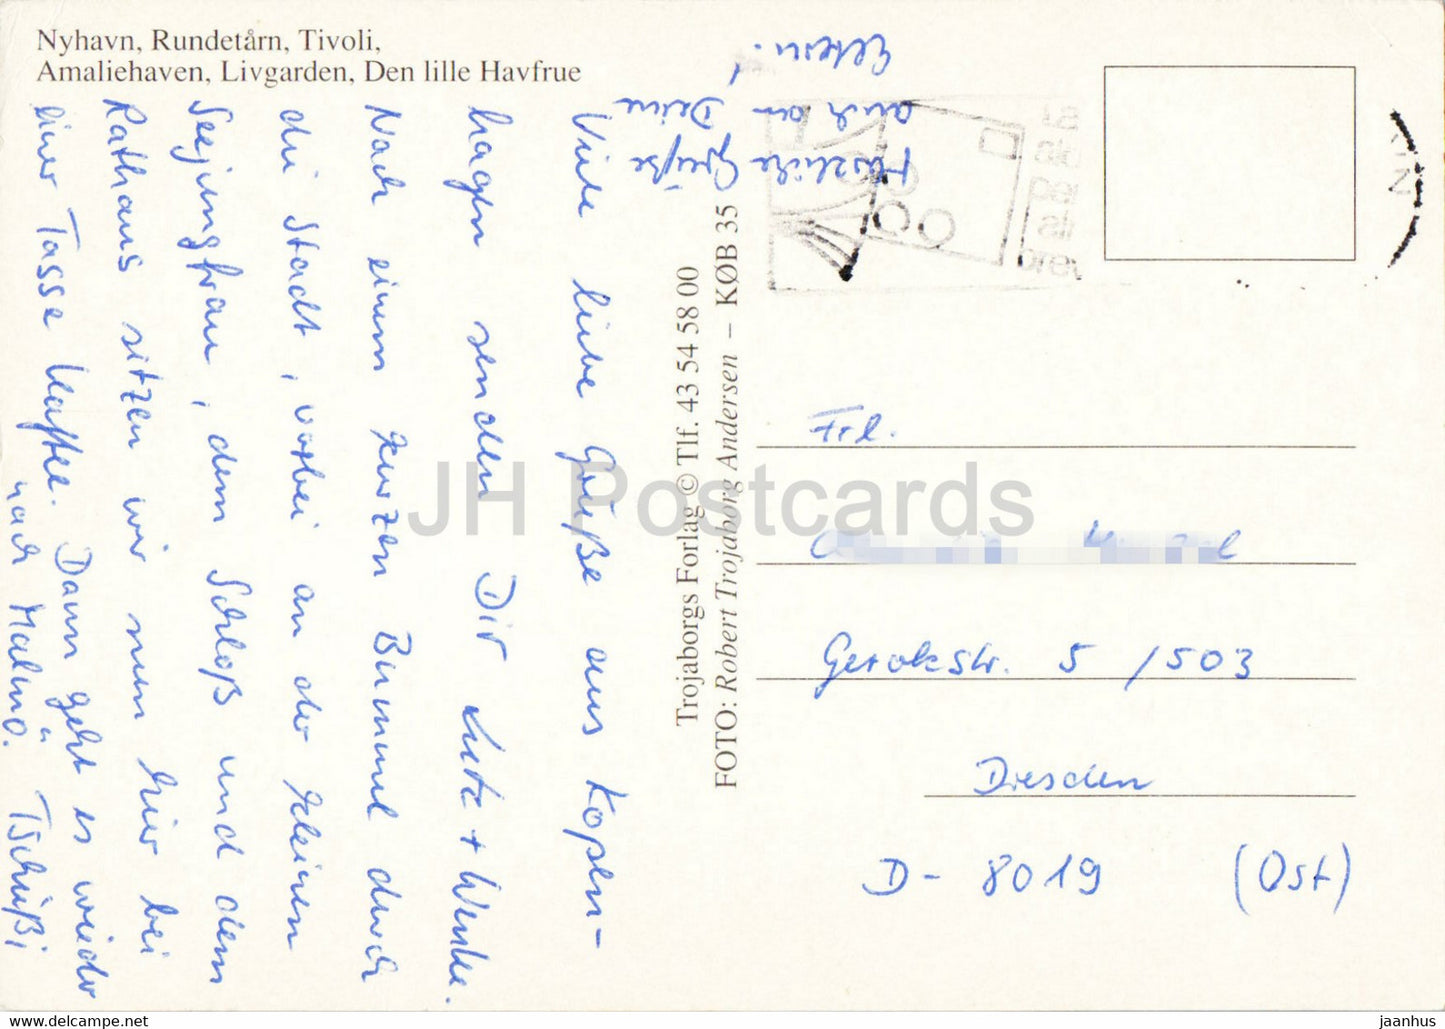 Nyhavn, Rundetårn, Tivoli,
Amaliehaven, Livgarden, Den lille Havfrue
Viele liebe Grüße aus Kopen-
hagen senden Dir Lutz + Wenke.
Nach einem kurzen Bummel durch
die Stadt, vorbei an der kleinen
Seejungfrau, dem Schloß und dem
Rathaus sitzen wir nun hier bei
einer Tasse Kaffee. Dann geht es wieder
nach Malmö. Tschüßi
Herzliche Grüße
auch an Deine
Eltern!
Trojaborgs Forlag © Tlf. 43 54 58 00
FOTO: Robert Trojaborg Andersen – KØB 35
Frl.
Gerokstr. 5 /503
Dresden
D- 8019 (Ost)
JH Postcards
www.delcampe.net
jaanhus